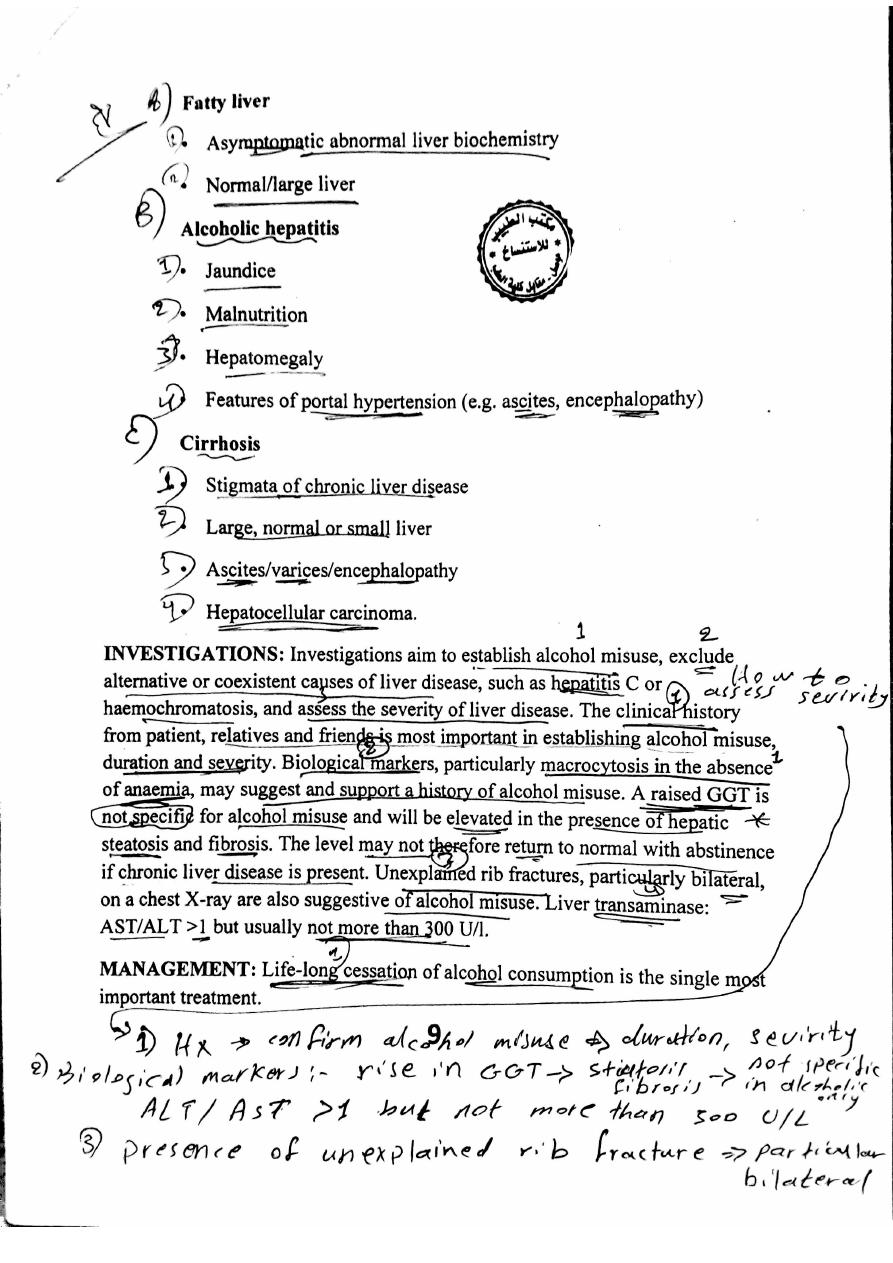 A) Fatty liver
1). Asymptomatic abnormal liver biochemistry
Normal/large liver
B) Alcoholic hepatitis
1). Jaundice
2). Malnutrition
3). Hepatomegaly
4) Features of portal hypertension (e.g. ascites, encephalopathy)
Cirrhosis
1) Stigmata of chronic liver disease
2) Large, normal or small liver
3.) Ascites/varices/encephalopathy
4.) Hepatocellular carcinoma.
مكتب الطبيب
للاستنساخ
موصل - مقابل كلية الطب
1 2
INVESTIGATIONS: Investigations aim to establish alcohol misuse, exclude
alternative or coexistent causes of liver disease, such as hepatitis C or
How to
assess sevirity
haemochromatosis, and assess the severity of liver disease. The clinical history
from patient, relatives and friends is most important in establishing alcohol misuse,
duration and severity. Biological markers, particularly macrocytosis in the absence
of anaemia, may suggest and support a history of alcohol misuse. A raised GGT is
not specific for alcohol misuse and will be elevated in the presence of hepatic
steatosis and fibrosis. The level may not therefore return to normal with abstinence
if chronic liver disease is present. Unexplained rib fractures, particularly bilateral,
on a chest X-ray are also suggestive of alcohol misuse. Liver transaminase:
AST/ALT >1 but usually not more than 300 U/l.
MANAGEMENT: Life-long cessation of alcohol consumption is the single most
important treatment.
1) Hx → confirm alcohol misuse → duration, sevirity
2) Biological markers :- rise in GGT → → not specific
fibrosis in alcoholic
only
ALT/AST >1 but not more than 300 U/L
3) presence of unexplained rib fracture ⇒ particular
bilateral
9